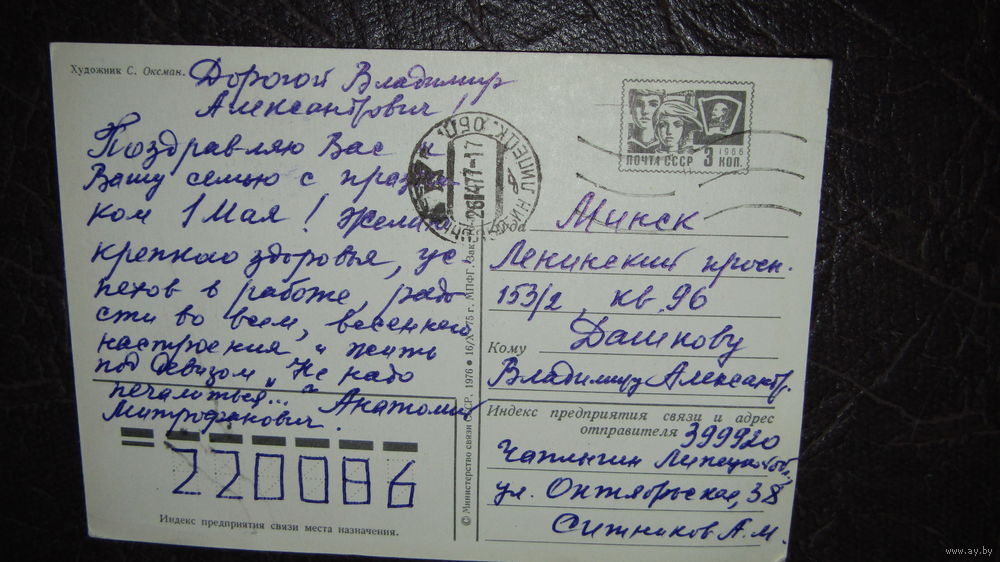 Художник С. Оксман.
Дорогой Владимир
Александрович!
Поздравляю Вас и
Вашу семью с праздни
ком 1 Мая! Желаю
крепкого здоровья, ус-
пехов в работе, радо
сти во всем, весеннего
настроения, и жить
под девизом "Не надо
печалиться..." Анатолий
Митрофанович.
220086
Индекс предприятия связи места назначения.
© Министерство связи СССР, 1976 • 16/X-75 г. МПФГ. Зак.
ЛИПЕЦК. ОБЛ.
26 4 77-17
ПОЧТА СССР 3 КОП.
1966
Куда Минск
Ленинский просп.
153/2, кв. 96
Дашкову
Кому
Владимиру Александр.
Индекс предприятия связи и адрес
отправителя 399920
Чаплыгин Липецкой обл.
ул. Октябрьская, 38
Ситников А.М.
www.ay.by